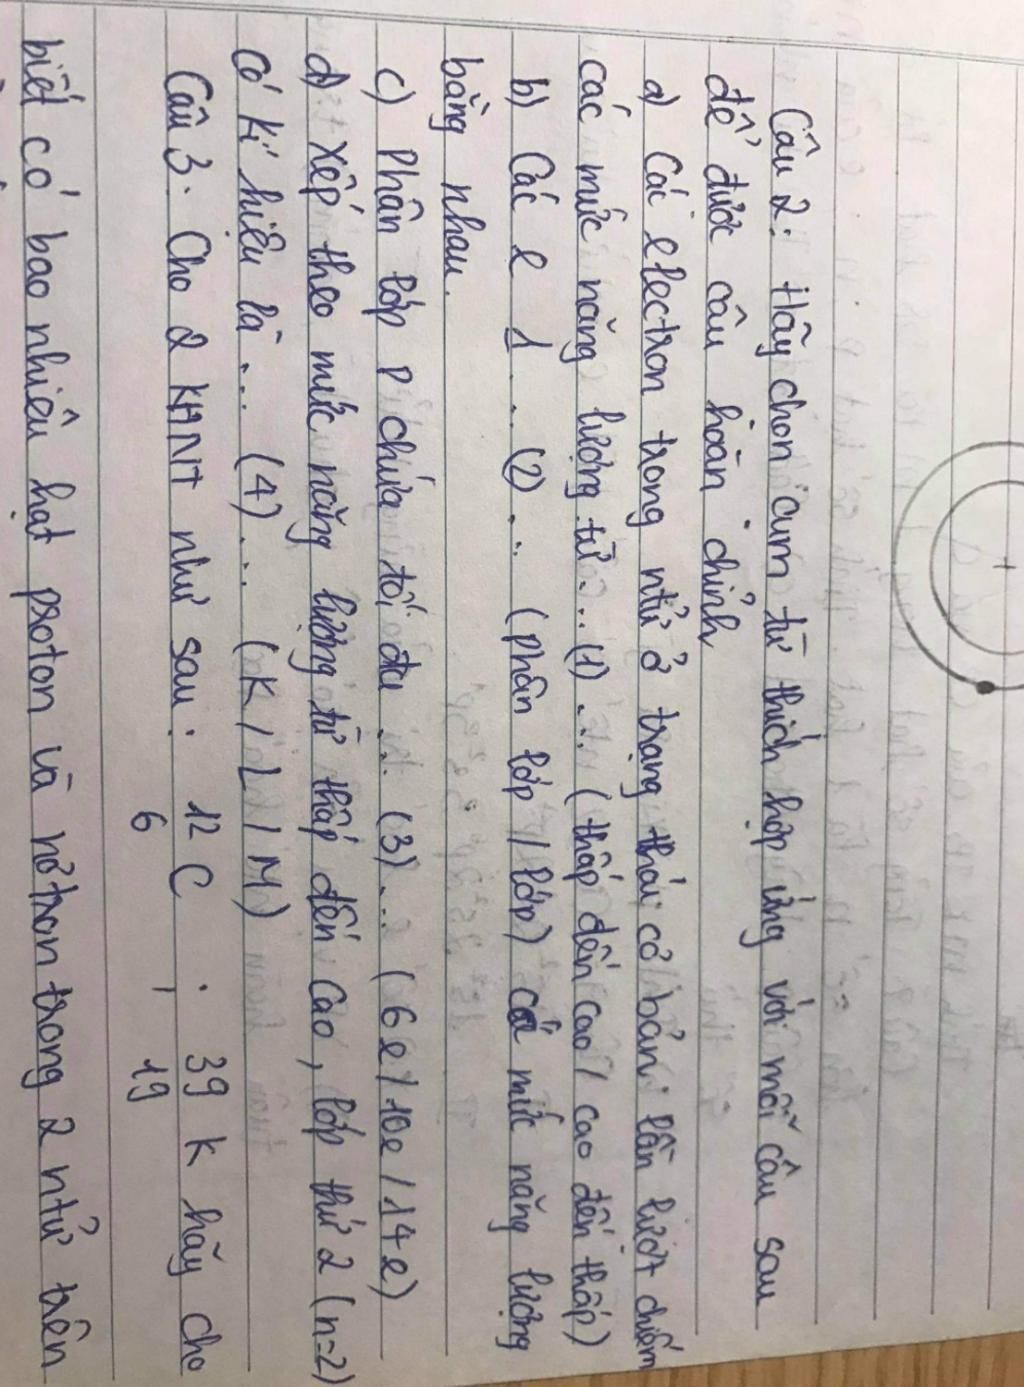 Câu 2: Hãy chọn cụm từ thích hợp ứng với mỗi câu sau
để được câu hoàn chỉnh
a) Các electron trong ntử ở trạng thái cơ bản lần lượt chiếm
các mức năng lượng từ ... (1) ... (thấp đến cao / cao đến thấp)
b) Các e 1 ... (2) ... (phân lớp / lớp) có mức năng lượng
bằng nhau.
c) Phân lớp p chứa tối đa ... (3) ... (6e / 10e / 14e)
d) Xếp theo mức năng lượng từ thấp đến cao, lớp thứ 2 (n=2)
có kí hiệu là ... (4) ... (K / L / M)
Câu 3: Cho 2 KHNT như sau: 12 6 C , 39 19 K hãy cho
biết có bao nhiêu hạt proton và nơtron trong 2 ntử trên